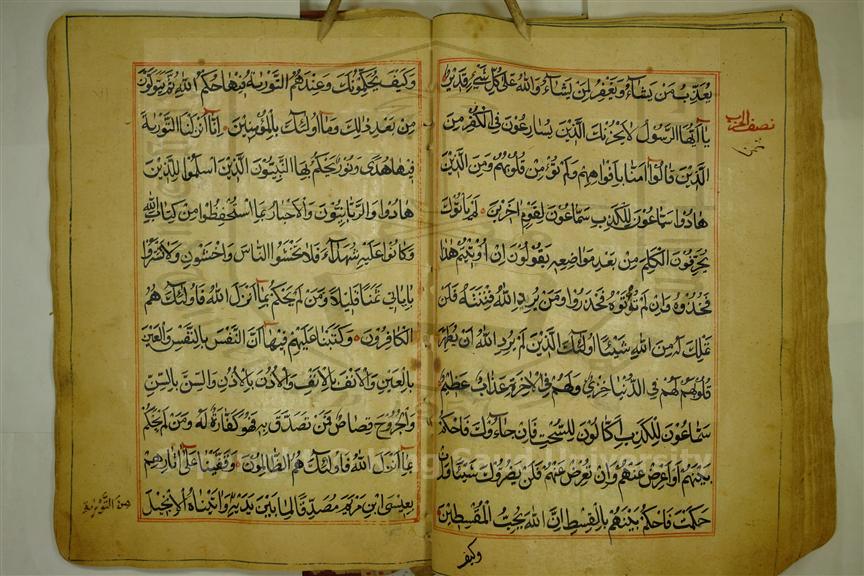 يعذب من يشاء ويغفر لمن يشاء والله على كل شيء قدير
يا أيها الرسول لا يحزنك الذين يسارعون في الكفر من
الذين قالوا آمنا بأفواههم ولم تؤمن قلوبهم ومن الذين
هادوا سماعون للكذب سماعون لقوم آخرين لم يأتوك
يحرفون الكلم من بعد مواضعه يقولون إن أوتيتم هذا
فخذوه وإن لم تؤتوه فاحذروا ومن يرد الله فتنته فلن
تملك له من الله شيئا أولئك الذين لم يرد الله أن يطهر
قلوبهم لهم في الدنيا خزي ولهم في الآخرة عذاب عظيم
سماعون للكذب أكالون للسحت فإن جاءوك فاحكم
بينهم أو أعرض عنهم وإن تعرض عنهم فلن يضروك شيئا وإن
حكمت فاحكم بينهم بالقسط إن الله يحب المقسطين
وكيف
نصف الحزب
وكيف يحكمونك وعندهم التورية فيها حكم الله ثم يتولون
من بعد ذلك وما أولئك بالمؤمنين إنا أنزلنا التورية
فيها هدى ونور يحكم بها النبيون الذين أسلموا للذين
هادوا والربانيون والأحبار بما استحفظوا من كتاب الله
وكانوا عليه شهداء فلا تخشوا الناس واخشون ولا تشتروا
بآياتي ثمنا قليلا ومن لم يحكم بما أنزل الله فأولئك هم
الكافرون وكتبنا عليهم فيها أن النفس بالنفس والعين
بالعين والأنف بالأنف والأذن بالأذن والسن بالسن
والجروح قصاص فمن تصدق به فهو كفارة له ومن لم يحكم
بما أنزل الله فأولئك هم الظالمون وقفينا على آثارهم
بعيسى ابن مريم مصدقا لما بين يديه وآتيناه الإنجيل
من التورية